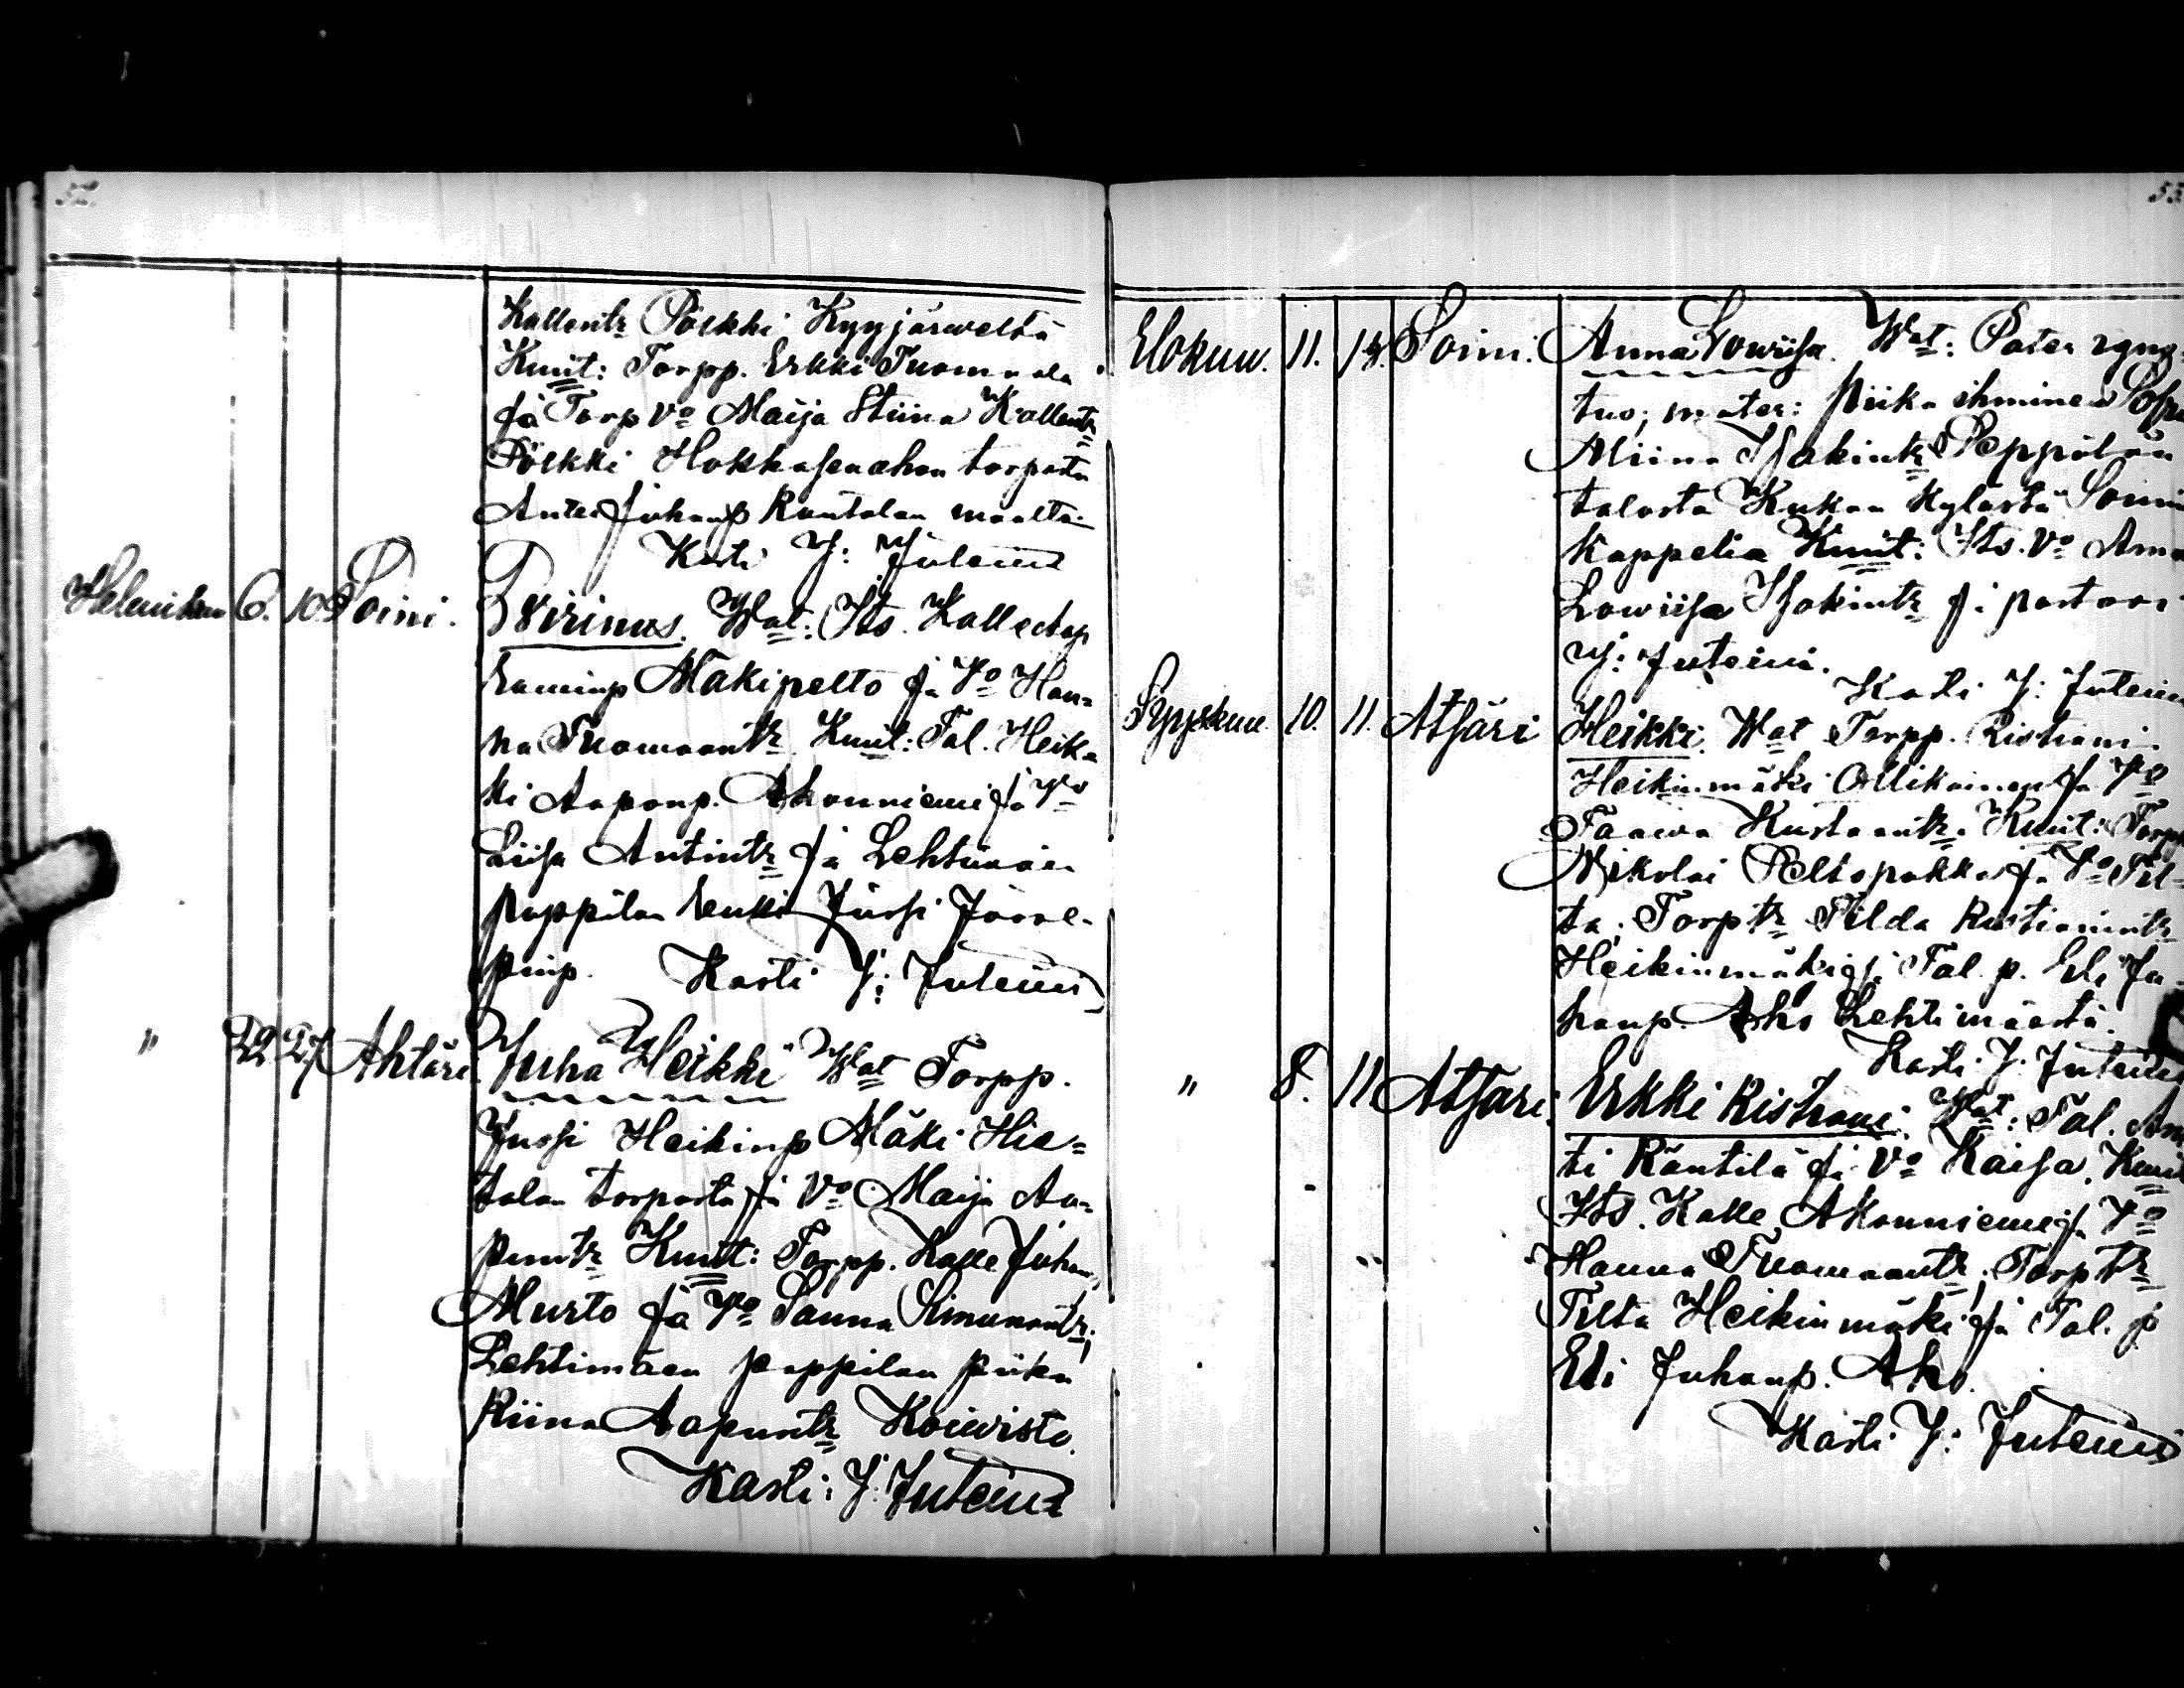 52.
Kallentr Pölkki Kyyjärweltä
Kmit: Torpp. Erkki Tuomaala
ja Torp Vo Maija Stiina Kallentr
Pölkki Hokkasenahon torpasta
Juhanp Rantalan maalta
Kasti J: Juteini
Heleinkuu 6. 10 Soini.
Wirinus. Wat: Its. Kalle Aap
Eeminp Mäkipelto ja Vo Han-
na Tuomaantr. Kmit: Tal. Heik-
ki Aaponp. Ahonniemi ja Vo
Liisa Antintr ja Lehtimäen
pappilan renki Jussi Joose-
pinp. Kasti J: Juteini
" 22 27 Ahtäri
Juha Heikki Wat Torpp.
Jussi Heikinp Mäki Hie-
talan torpasta ja Vo Maija Aa-
puntr Kmit: Torpp. Kalle Juhanp
Murto ja Vo Sanna Simunantr;
Lehtimäen pappilan piika
Riina Aapuntr Koiwisto.
Kasti: J: Juteini
53
Elokuu. 11. 14. Soini.
Anna Lowiisa. Wat: Pater igno
tus; mater: Piika ihminen Sofia
Miina Isakintr Peppilän
talosta Kukon kylästä Soini
kappelia Kmit: Its. Vo Anna
Lowiisa Isakintr ja pastori
J: Juteini.
Kasti J: Juteini
Syyskuu. 10. 11. Atsäri
Heikki. Wat Torpp. Ristiani
Heikinmäki Ollikainen ja Vo
Taawa Kustaantr. Kmit: Torpp
Nikolai Peltopakka ja Vo Til-
ta; Torp tr Tilda Ristianintr
Heikinmäki ja Tal. p. Eli Ju
hanp. Aho Lehtimäestä.
Kasti J: Juteini
" 8. 11 Atsäri.
Erkki Ristiani. Wat: Tal. An
ti Räntilä ja Vo Kaisa. Kmit
Its. Kalle Ahonniemi ja Vo
Hanna Tuomaantr; Torp tr
Tilta Heikinmäki ja Tal. p
Eli Juhanp. Aho.
Kasti J: Juteini